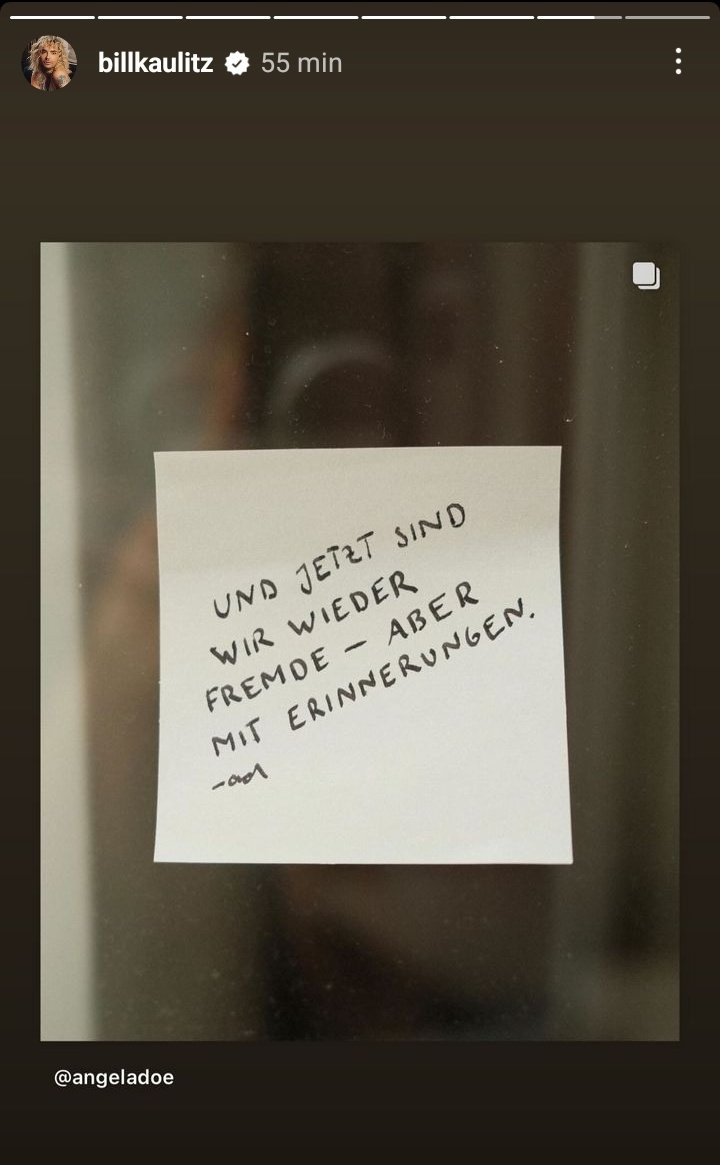 billkaulitz 55 min
UND JETZT SIND
WIR WIEDER
FREMDE – ABER
MIT ERINNERUNGEN.
-ad
@angeladoe